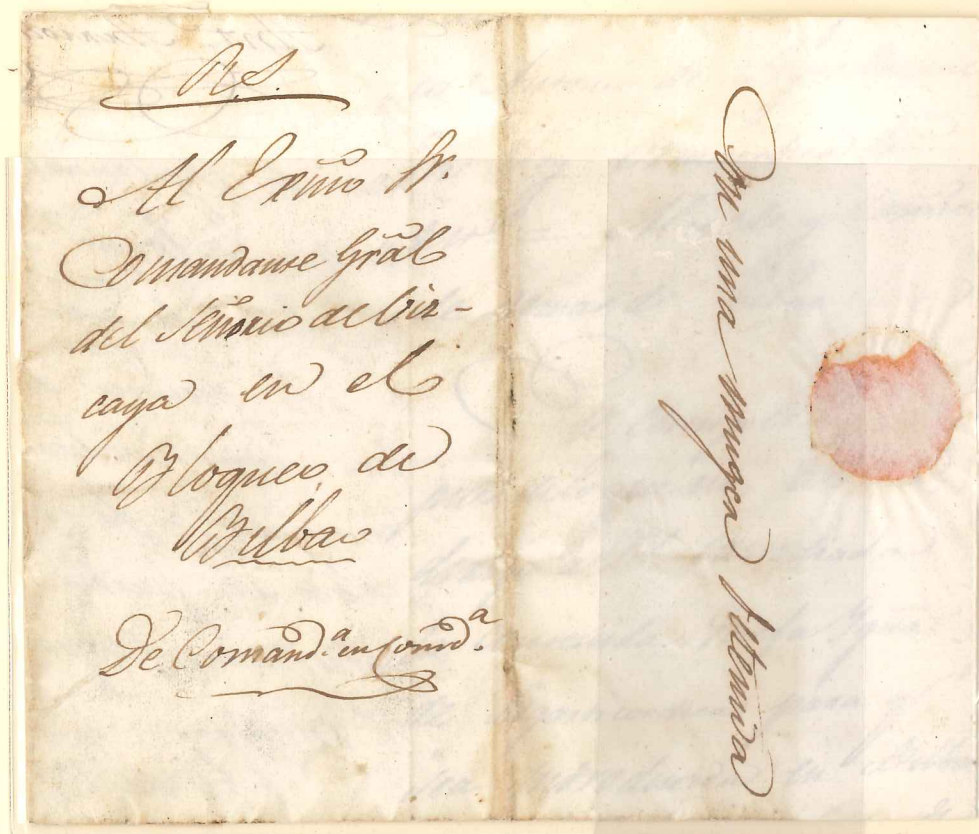 R.S.
Al Exmo Sr.
Comandante Grãl
del Señorio de Viz-
caya en el
Bloqueo de
Bilbao
De Comand.ª en Comd.ª
Con una muger detenida